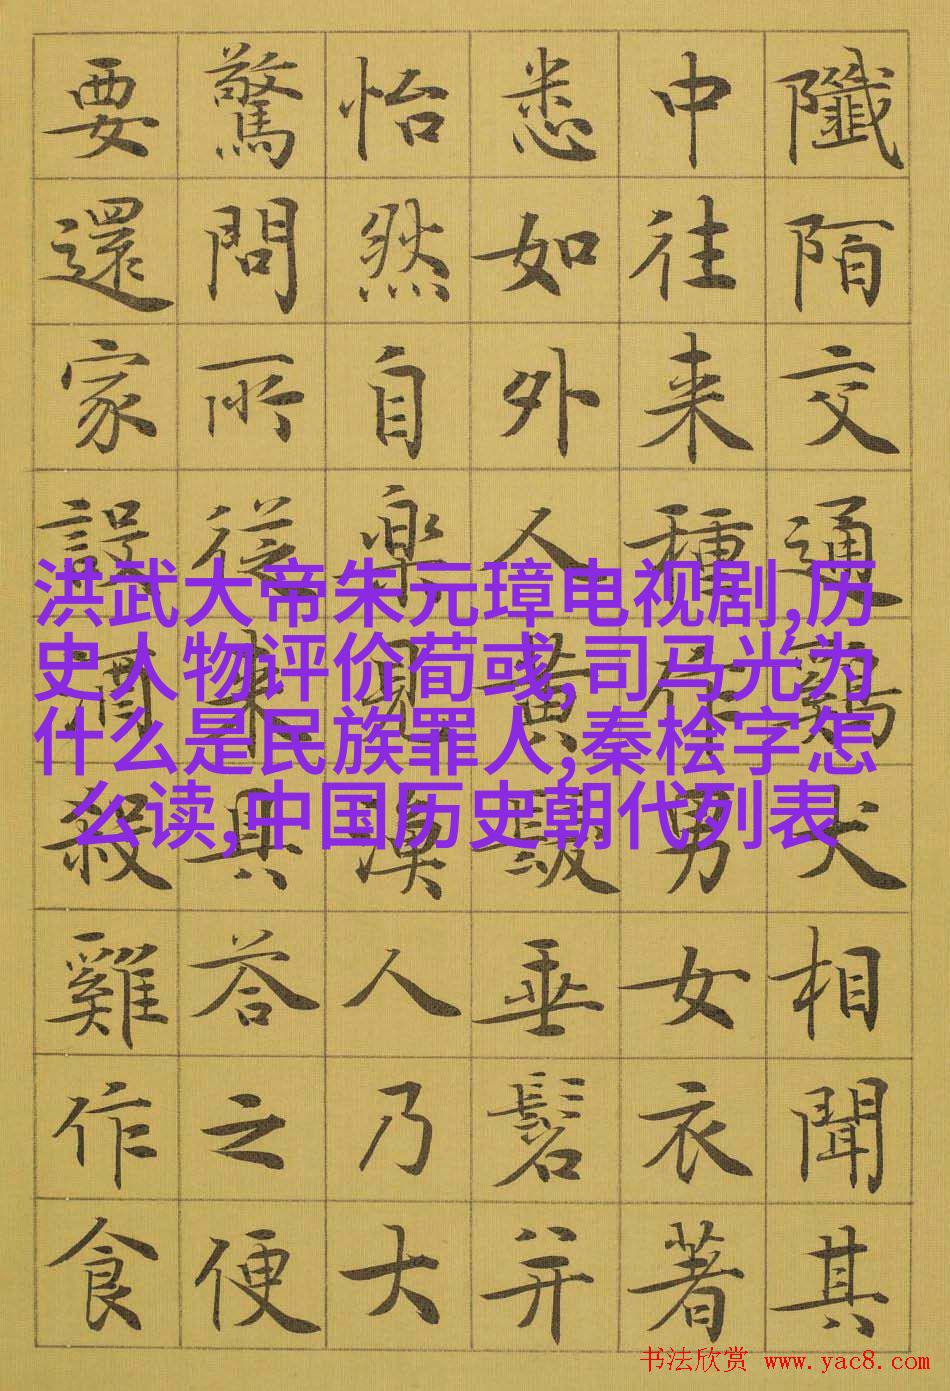 陌交通鷄犬相聞其
中往来種作男女衣著
悉如外人黄髮垂髫并
怡然自楽見漁人乃大
驚問所從来具答之便
要還家設酒殺雞作食
洪武大帝朱元璋电视剧,历
史人物评价荀彧,司马光为
什么是民族罪人,秦桧字怎
么读,中国历史朝代列表
书法欣赏 www.yac8.com